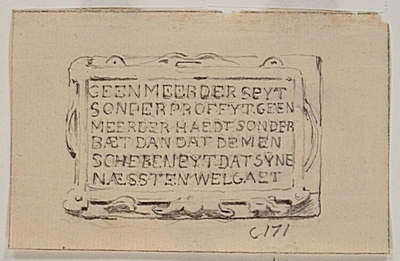 GEEN MEERDER SPYT
SONDER PROFFYT. GEEN
MEERDER HAEDT SONDER
BÆT DAN DAT DE MEN
SCHE BENEYT DAT SYNE
NÆSSTEN WEL GAET
C171